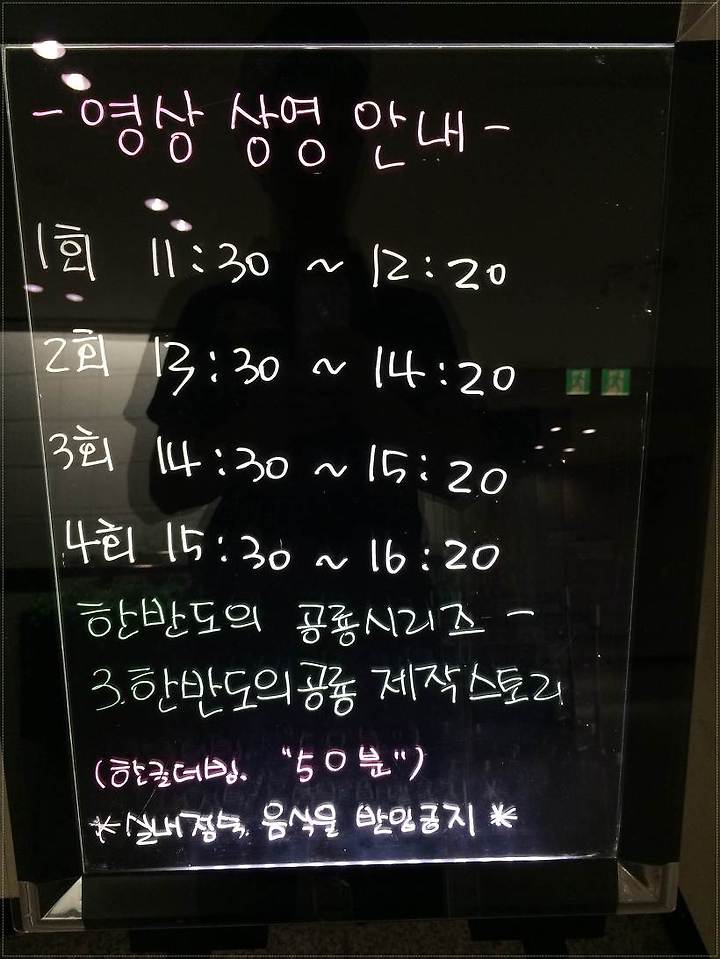 - 영상 상영 안내 -
1회 11:30 ~ 12:20
2회 13:30 ~ 14:20
3회 14:30 ~ 15:20
4회 15:30 ~ 16:20
한반도의 공룡시리즈 -
3. 한반도의공룡 제작스토리
(한글더빙. "50분")
*실내정숙. 음식물 반입금지 *